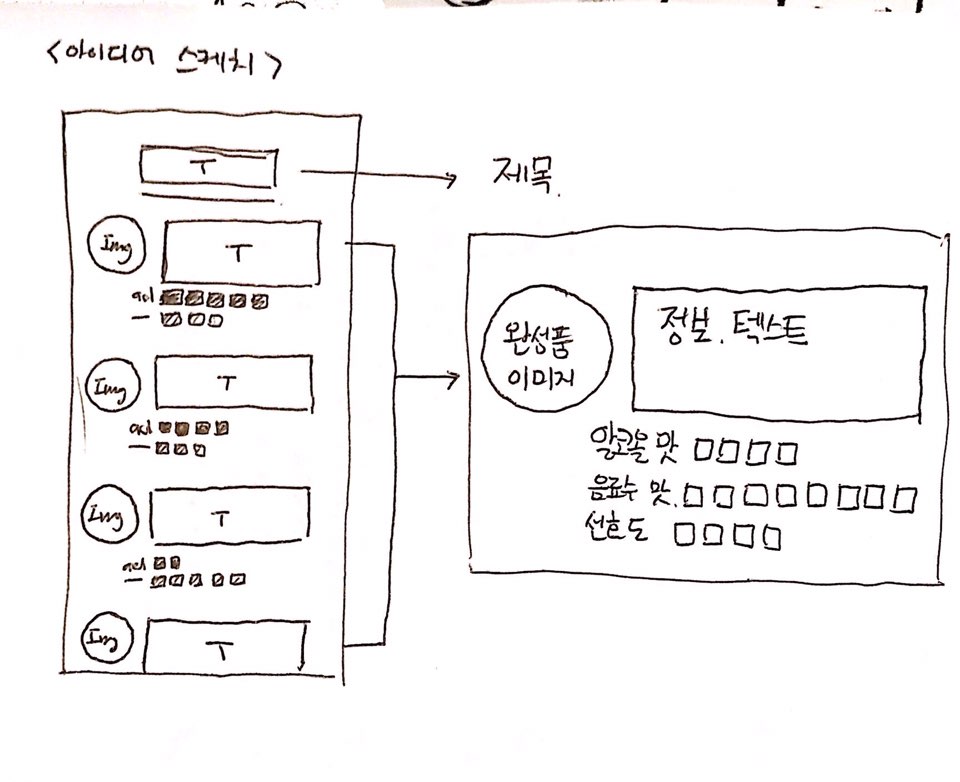 <아이디어 스케치>
T
제목.
Img
T
Img
T
Img
T
Img
T
완성품
이미지
정보. 텍스트
알코올 맛
음료수 맛.
선호도